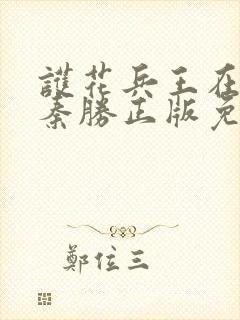 護花兵王在
秦勝正版免
鄭位三